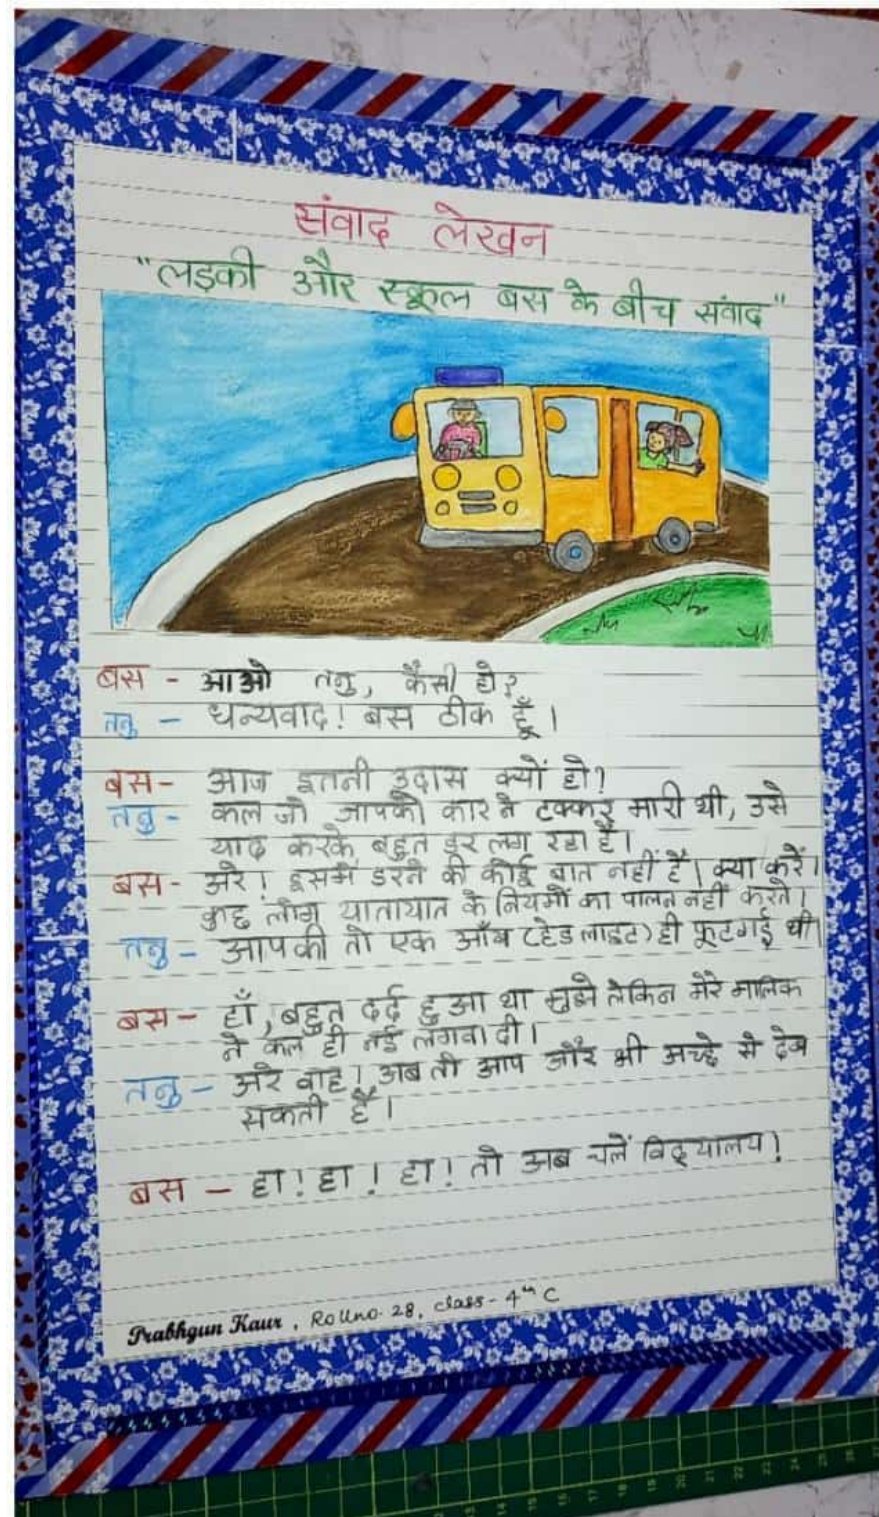 संवाद लेखन
"लड़की और स्कूल बस के बीच संवाद"
बस - आओ तनु, कैसी हो?
तनु - धन्यवाद! बस ठीक हूँ।
बस - आज इतनी उदास क्यों हो?
तनु - कल जो आपको कार ने टक्कर मारी थी, उसे
याद करके बहुत डर लग रहा है।
बस - अरे! इसमें डरने की कोई बात नहीं है। क्या करें।
कुछ लोग यातायात के नियमों का पालन नहीं करते।
तनु - आपकी तो एक आँख (हेडलाइट) ही फूट गई थी।
बस - हाँ, बहुत दर्द हुआ था मुझे लेकिन मेरे मालिक
ने कल ही नई लगवा दी।
तनु - अरे वाह! अब तो आप और भी अच्छे से देख
सकती हैं।
बस - हा! हा! हा! तो अब चलें विद्यालय!
Prabhgun Kaur, Roll no. 28, class - 4th C